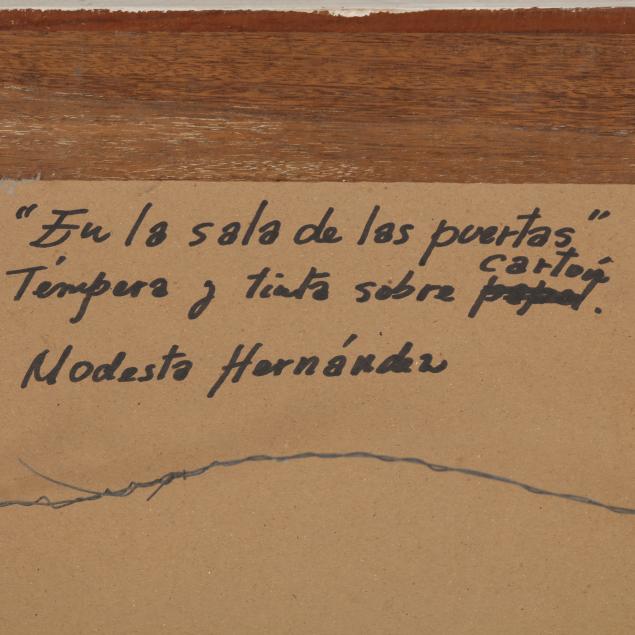 "En la sala de las puertas"
Témpera y tinta sobre cartón papel.
Modesta Hernández